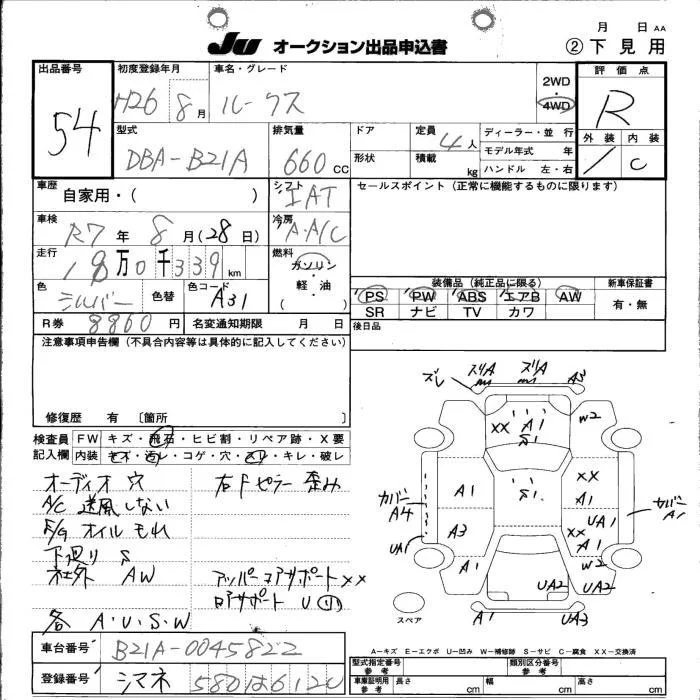 月 日 AA
JU オークション出品申込書 ② 下見用
出品番号 54
初度登録年月 H26 8月
車名・グレード ルークス
2WD・4WD
評価点 R
外装 / 内装 C
型式 DBA-B21A
排気量 660 CC
ドア 形状
定員 4人
積載 kg
ディーラー・並 行
モデル年式 年
ハンドル 左・右
車歴 自家用・( )
シフト IAT
セールスポイント (正常に機能するものに限ります)
車検 R7年 8月(28日)
冷房 A・A/C
走行 18万0千339km
燃料 ガソリン・軽・油 ( )
色 シルバー 色替 色コード A31
装備品 (純正品に限る)
新車保証書 有・無
PS PW ABS エアB AW
SR ナビ TV カワ
R券 8860円 名変通知期限 月 日
後日品
注意事項申告欄 (不具合内容等は具体的に記入してください)
修復歴 有 〔箇所 〕
検査員記入欄
FW キズ・飛石・ヒビ割・リペア跡・X要
内装 キズ・汚レ・コゲ・穴・スリ・キレ・破レ
オーディオ穴
右Fピラー 歪み
A/C 送風しない
E/G オイルもれ
下廻り S
社外 AW
アッパーコアサポート XX
ロアサポート U
各 A・U・S・W
ズレ ズリA ズリA A3
XX A1 S1 W2
A1 S1 XX A1
カバー A4 カバー A1
A3 XX UA1 A1
UA1 A1 W2
UA2 UA2
A1 UA3
スペア
A-キズ E-エクボ U-凹み W-補修跡 S-サビ C-腐食 XX-交換済
車台番号 B21A-0045822
登録番号 シマネ 580
型式指定番号 参考
類別区分番号 参考
車庫証明用 参考 長さ cm 幅 cm 高さ cm